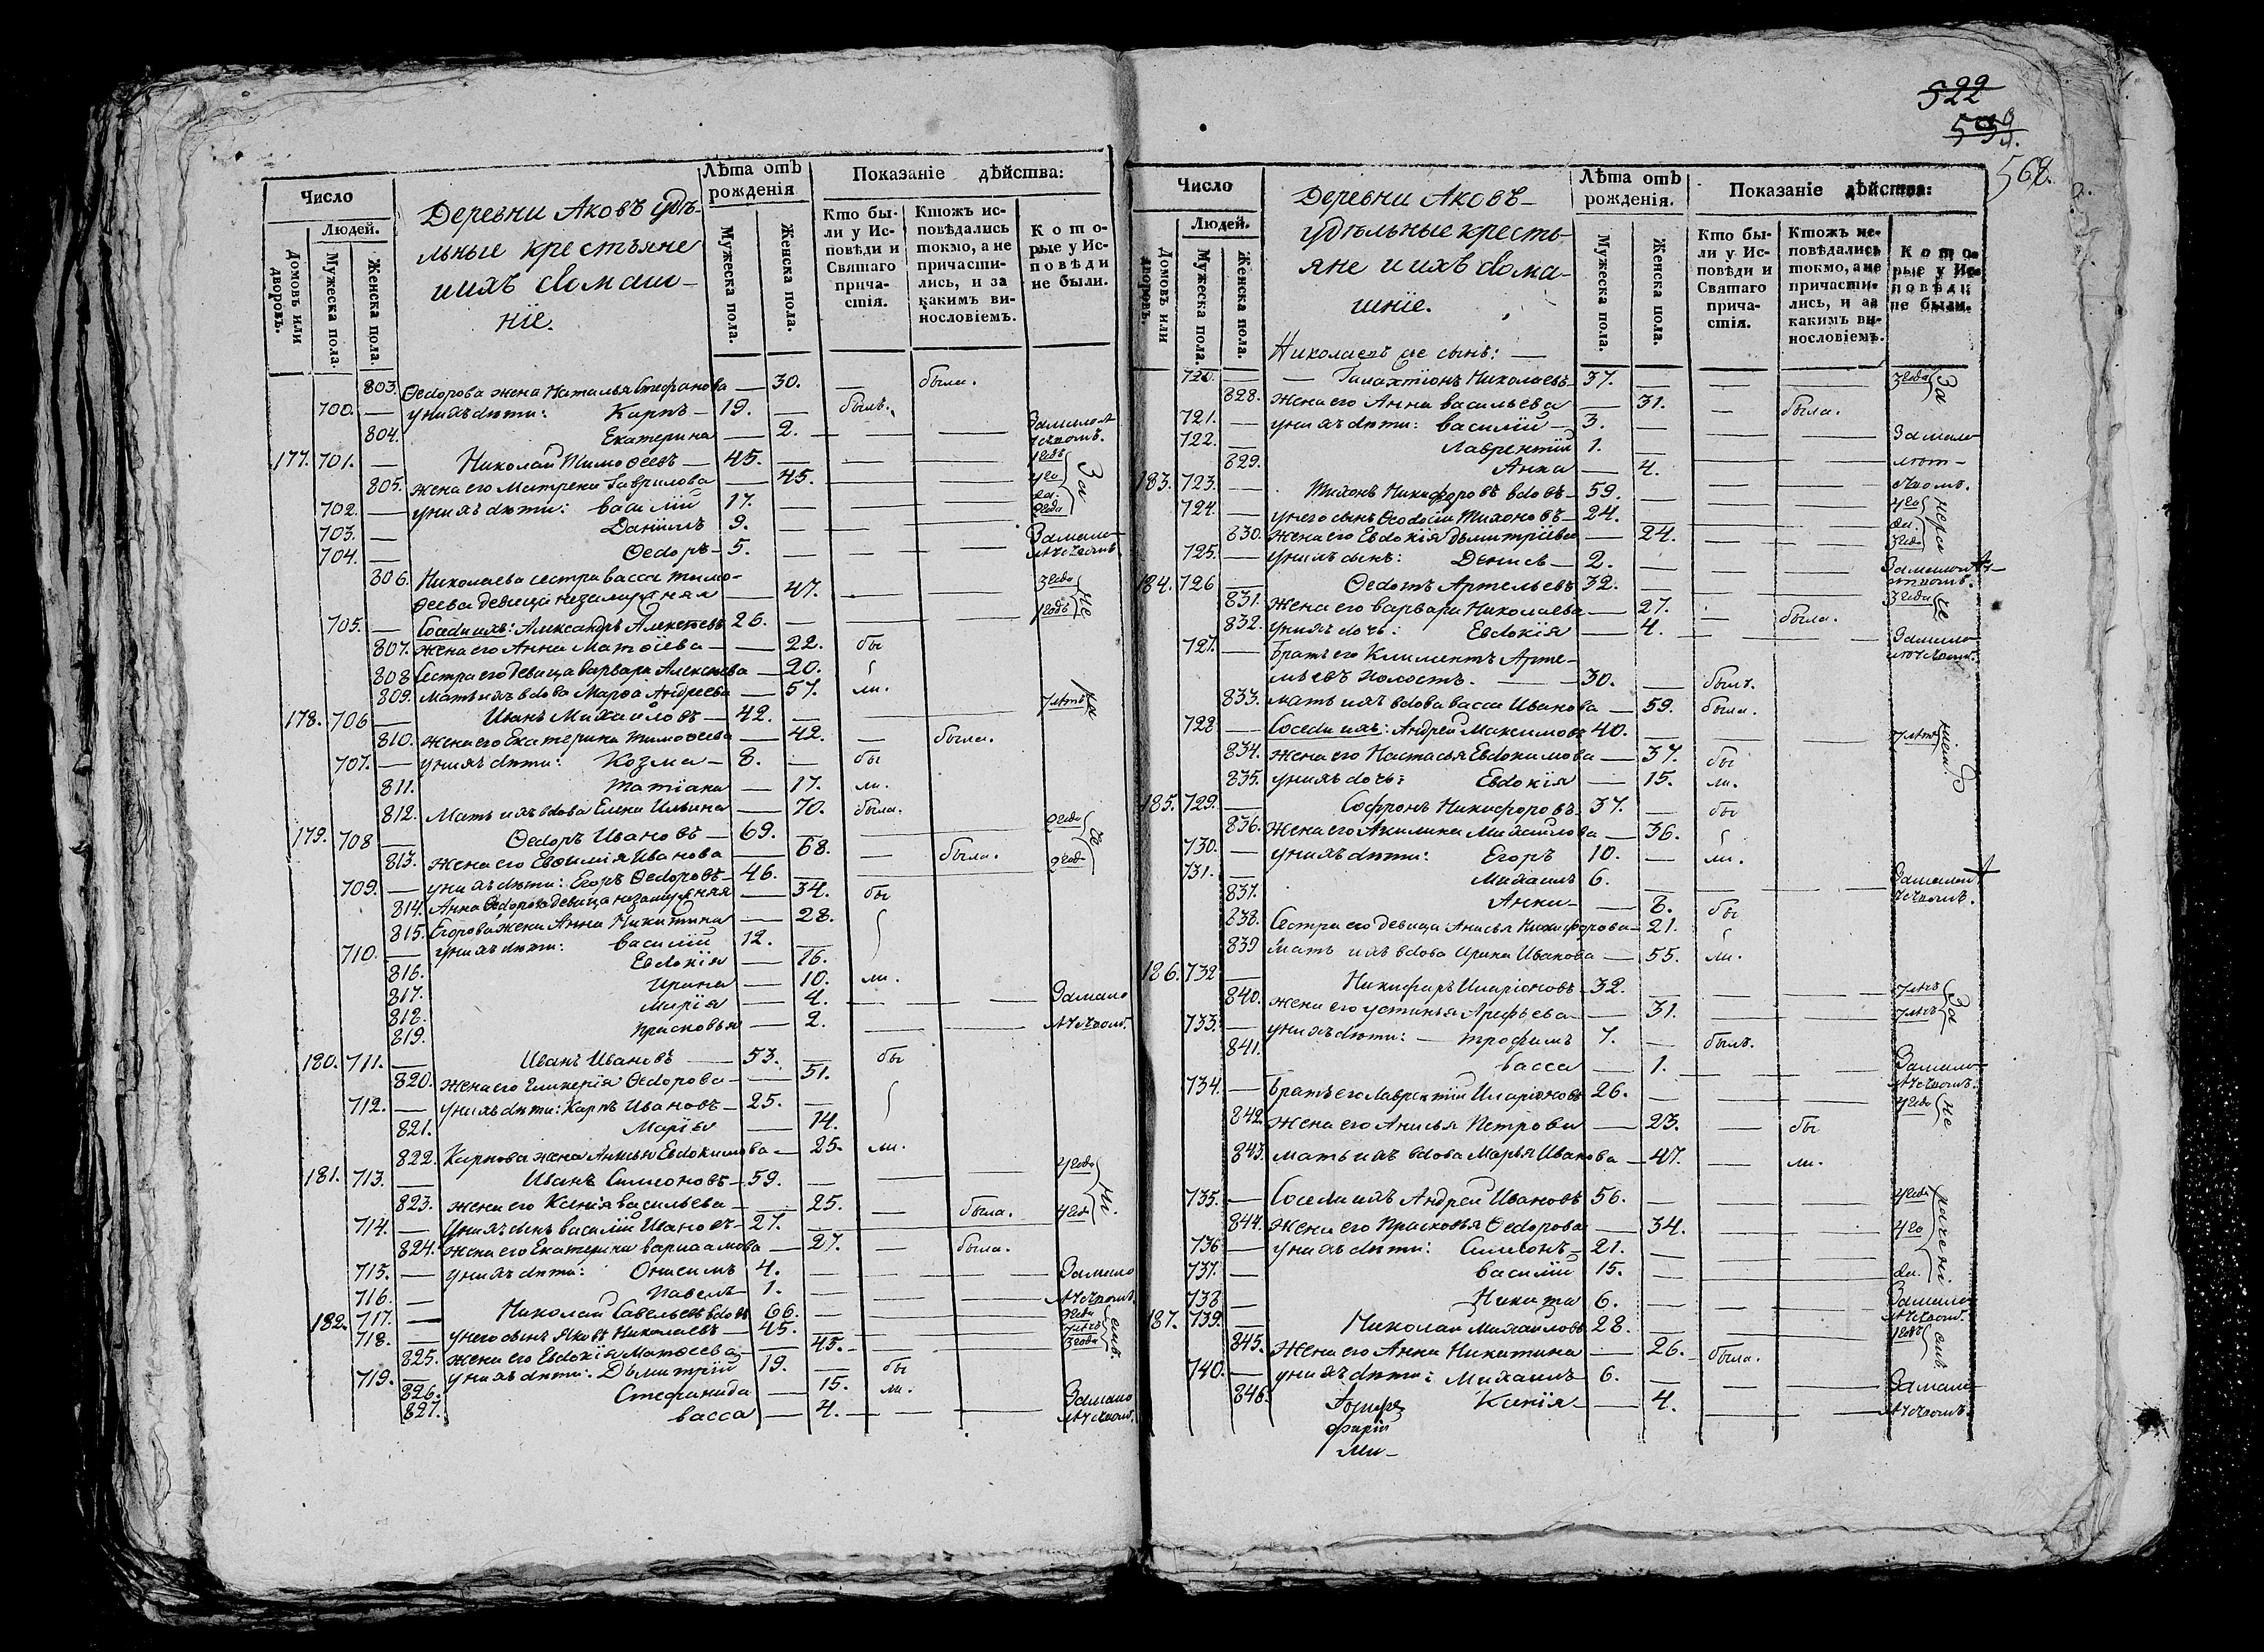 Число
Людей.
Домовъ или дворовъ.
Мужеска пола.
Женска пола.
Деревни Аковъ удѣ-
льные крестьяне
и ихъ домаш-
нiе.
Лѣта отъ рожденія
Мужеска пола.
Женска пола.
Показаніе дѣйства:
Кто бы-
ли у Ис-
повѣди и
Святаго
прича-
стія.
Ктожъ ис-
повѣдались
токмо, а не
причасти-
лись, и за
какимъ ви-
нословіемъ.
Кото-
рые у Ис-
повѣди
не были.
803. Ѳедорова жена Наталья Стефанова — 30. — была.
700. — у нихъ дѣти: Карпъ — 19. — былъ.
804. Екатерина — 2. — — — За мало л
ѣтствомъ.
177. 701. — Николай Тимоѳеевъ — 45. — — — 1 годъ За
805. жена его Матрена Гаврилова — 45. — — 4 го
да.
702. — у нихъ дѣти: Василій 17. — — — 2 года
703. — Даніилъ 9. — — —
704. — Ѳедоръ — 5. — — — За мало
лѣтствомъ
806. Николаева сестра Васса Тимо-
ѳеева девица незамужняя — 47. — — 3 года не
705. — Соседи ихъ: Александръ Алексѣевъ 26. — — 1 годъ
807. жена его Анна Матѳіева — — 22. бы
808 Сестра его девица Варвара Алексѣева — 20.
809. Мать ихъ вдова Марѳа Андреева — 57. ли.
178. 706 — Иванъ Михайловъ — 42. — — 7 лѣтъ на
810. жена его Екатерина Тимоѳеева — 42. — была.
707. — у нихъ дѣти: Козма — 8. — бы
811. Татіана — 17. ли.
812. Мать ихъ вдова Елена Ильина — 70. была.
179. 708 — Ѳедоръ Ивановъ — 69. — — 2 года
813. жена его Евѳимія Иванова — 68. — была.
709. — у нихъ дѣти: Егоръ Ѳедоровъ — 46. — — 2 года
814. Анна Ѳедорова девица незамужняя — 34. бы
815. Егорова жена Анна Никитина — 28.
710. — у нихъ дѣти: Василій 12. —
816. Евдокія — 16.
817. Ирина — 10. ли.
818. Марія — 4. — — За мало
819. Прасковья — 2. — — лѣтством.
180. 711. — Иванъ Ивановъ — 53. — бы
820. жена его Гликерія Ѳедорова — — 51.
712. — у нихъ дѣти: Карпъ Ивановъ — 25. —
821. Марія — 14.
822. Карпова жена Анисья Евдокимова — 25. ли.
181. 713. — Иванъ Симеоновъ — 59. — — 4 года
823. жена его Ксенія Васильева — 25. — была.
714. — у нихъ сынъ Василій Ивановъ — 27. — — 4 года
824. Жена его Екатерина Варлаамова — 27. — была.
715. — у нихъ дѣти: Онисимъ 4. — — — За мало
716. — Павелъ 1. — — — лѣтством.
182. 717. — Николай Савельевъ вдовъ 66. — — — 2 года
718. — у него сынъ Яковъ Николаевъ — 45. — — — 7 лѣтъ
825. жена его Евдокія Матѳеева — 45. — — 3 года
719. — у нихъ дѣти: Дьмитрій 19. — бы
826. Стефанида — 15. ли.
827. Васса — 4. — — — За мало
лѣтством.
522
568.
Число
Людей.
Домовъ или дворовъ.
Мужеска пола.
Женска пола.
Деревни Аковъ
удѣльные кресть-
яне и ихъ дома-
шніе.
Лѣта отъ рожденія.
Мужеска пола.
Женска пола.
Показаніе дѣйства:
Кто бы-
ли у Ис-
повѣди и
Святаго
прича-
стія.
Ктожъ ис-
повѣдались
токмо, а не
причасти-
лись, и за
какимъ ви-
нословіемъ.
Кото-
рые у Ис-
повѣди
не были.
Николаевъ же сынъ: —
720. — — Галахтіонъ Николаевъ 37. — — — 3 года За
828. жена его Анна Васильева — 31. — была.
721. — у нихъ дѣти: Василій — 3. — — — За мало
722. — Лаврентій 1. — — — лѣт-
829. Анна — 4. — — ством.
183. 723. — Тихонъ Никифоровъ вдовъ — 59. — — — 4 го
724. — у него сынъ Ѳеодосій Тихоновъ — 24. — — — да.
830. Жена его Евдокія Дьмитріева — 24. — — 3 года
725. — у нихъ сынъ: Денисъ — 2. — — — За мало лѣ-
тством.
184. 726 — Ѳедотъ Артемьевъ 32. — — — 3 года
831. Жена его Варвара Николаева — 27. — была.
832. у нихъ дочь: Евдокія — 4. — — За мало
лѣтством.
727. — Братъ его Климентъ Арте-
мьевъ холостъ. — 30. — былъ.
833. Мать ихъ вдова Васса Иванова — 59. была.
728 — Соседи ихъ: Андрей Максимовъ 40. — — — 7 лѣтъ
834. Жена его Настасья Евдокимова — 37. бы
835. у нихъ дочь: Евдокія — 15. ли.
185. 729. — Софронъ Никифоровъ 37. — бы
836. Жена его Акилина Михайлова — 36.
730. — у нихъ дѣти: Егоръ 10. — ли.
731. — Михаилъ 6. — — — За мало л
837. Анна — 8. бы ѣтством.
838. Сестра его девица Анисья Никифорова — 21.
839 Мать ихъ вдова Ирина Иванова — 55. ли.
186. 732 — Никифоръ Иларіоновъ — 32. — — — 7 лѣтъ За
840. жена его Устинья Арефьева — 31. — — 7 лѣтъ
733. — у нихъ дѣти: — Трофимъ 7. — былъ.
841. Васса — 1. — — За мало
лѣтством.
734. — Братъ его Лаврентій Иларіоновъ 26. — — — 4 года не
842. Жена его Анисья Петрова — 23. — бы
843. Мать ихъ вдова Марья Иванова — 47. — ли.
735. — Соседи ихъ Андрей Ивановъ 56. — — — 4 года
844. Жена его Прасковья Ѳедорова — 34. — — 4 го
736 — у нихъ дѣти: Симеонъ — 21. — — —
737. — Василій 15. — — — да.
738 — Никита 6. — — — За мало
лѣтством.
187. 739. — Николай Михайловъ 28. — — — 1 годъ
845. Жена его Анна Никитина — 26. была.
740. — у нихъ дѣти: Михаилъ 6. — — — За мало
846. Ксенія — 4. — — лѣтством.